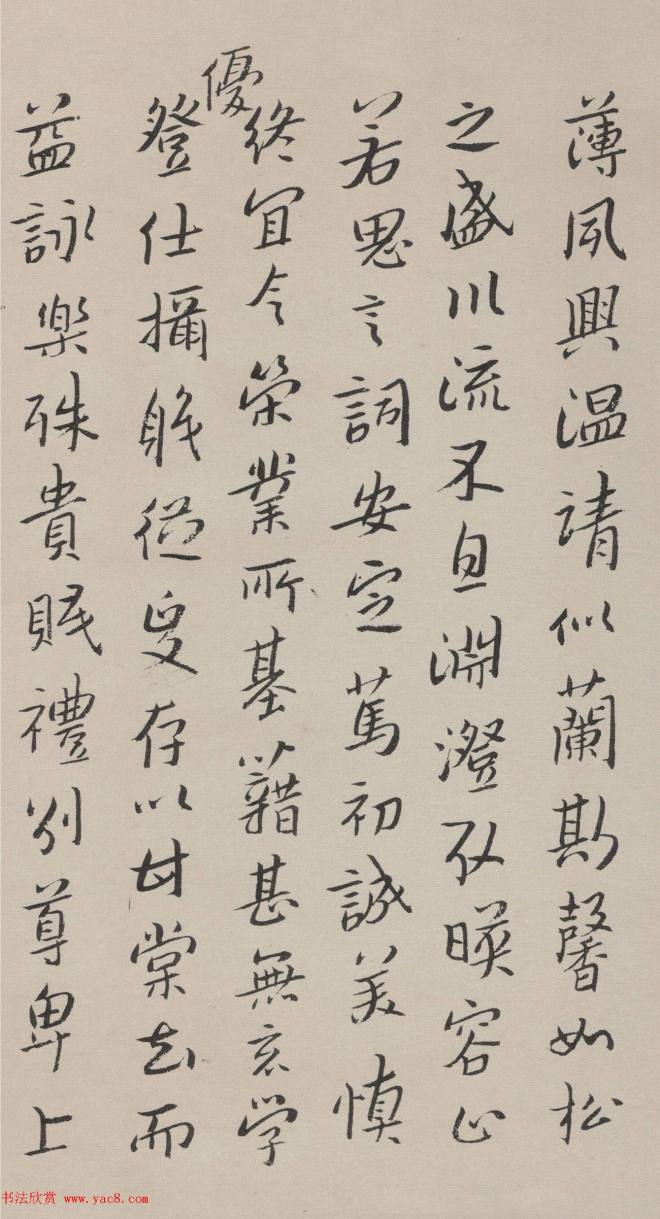 薄夙興温清似蘭斯馨如松
之盛川流不息淵澄取暎容止
若思言詞安定篤初誠美慎
終宜令榮業所基籍甚無竟學
優
登仕攝職從政存以甘棠去而
益詠樂殊貴賤禮別尊卑上
书法欣赏 www.yac8.com